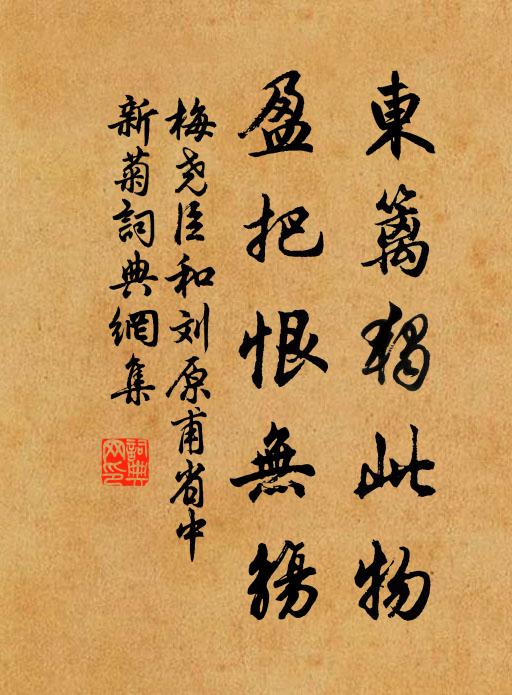 東籬獨此物
盈把恨無觴
梅尧臣和刘原甫省中
新菊詞典網集
詞典网印